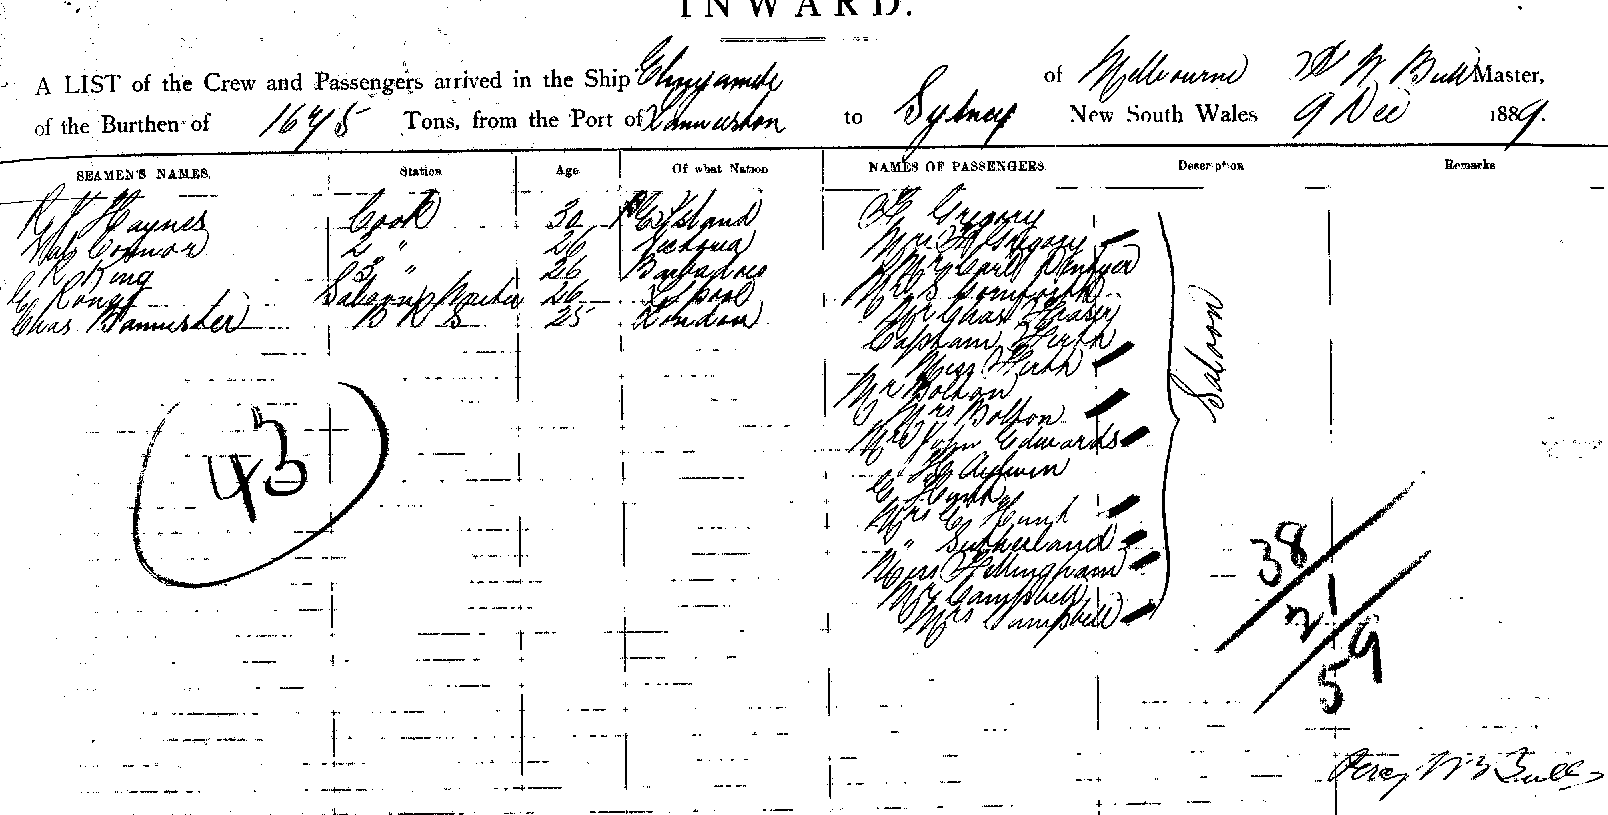 INWARD.
A LIST of the Crew and Passengers arrived in the Ship Elingamite of Melbourne W Bull Master,
of the Burthen of 1675 Tons, from the Port of Launceston to Sydney New South Wales 9 Dec 1889.
SEAMEN'S NAMES. Station Age Of what Nation NAMES OF PASSENGERS. Description Remarks
Haynes Cook 30 Island
Connor 2 " 26 Victoria
King 3 " 26 Barbadoes
Saloon Waiter 26 L'pool
Chas Bannister B R S 25 London
Gregory
Mrs Gregory
Mr Carl Pinschof
Mr S Cornforth
Mr Chas Fraser
Captain Firth
Miss Firth
Mr Bolton
Mrs Bolton
Mrs John Edwards
Aylwin
Hunt
Mrs C Hunt
" Sutherland
Miss Fillingham
Mr Campbell
Mrs Campbell
Saloon
43
38
21
59
Percy W Bull